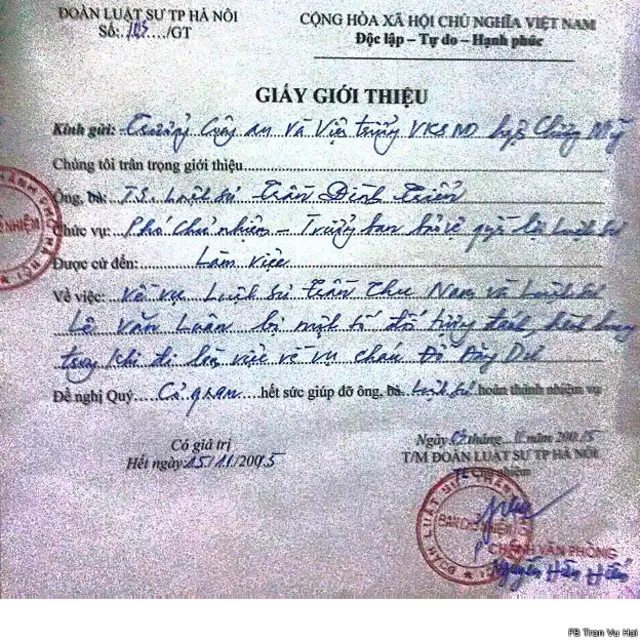 ĐOÀN LUẬT SƯ TP HÀ NÔI
Số:.105..../GT
CỘNG HÒA XÃ HỘI CHỦ NGHĨA VIỆT NAM
Độc lập – Tự do – Hạnh phúc
GIẤY GIỚI THIỆU
Kính gửi: Trưởng Công an và Viện trưởng VKSND huyện Chương Mỹ
Chúng tôi trân trọng giới thiệu
Ông, bà: T.S. Luật sư Trần Đình Triển
Chức vụ: Phó chủ nhiệm – Trưởng ban bảo vệ quyền lợi Luật sư
Được cử đến: Làm việc
Về việc: Về vụ Luật sư Trần Thu Nam và Luật sư
Lê Văn Luân bị một số đối tượng đánh, hành hung
trong khi đi làm việc về vụ cháu Đỗ Đăng Dư
Đề nghị Quý....Cơ quan....hết sức giúp đỡ ông, bà. Luật sư hoàn thành nhiệm vụ
Có giá trị
Hết ngày 15/11/2005
Ngày tháng 11 năm 200
T/M ĐOÀN LUẬT SƯ TP HÀ NÔI
TL Chủ nhiệm
BAN CHỦ NHIỆM
CHÁNH VĂN PHÒNG
Nguyễn
FB Tran Vu Hai